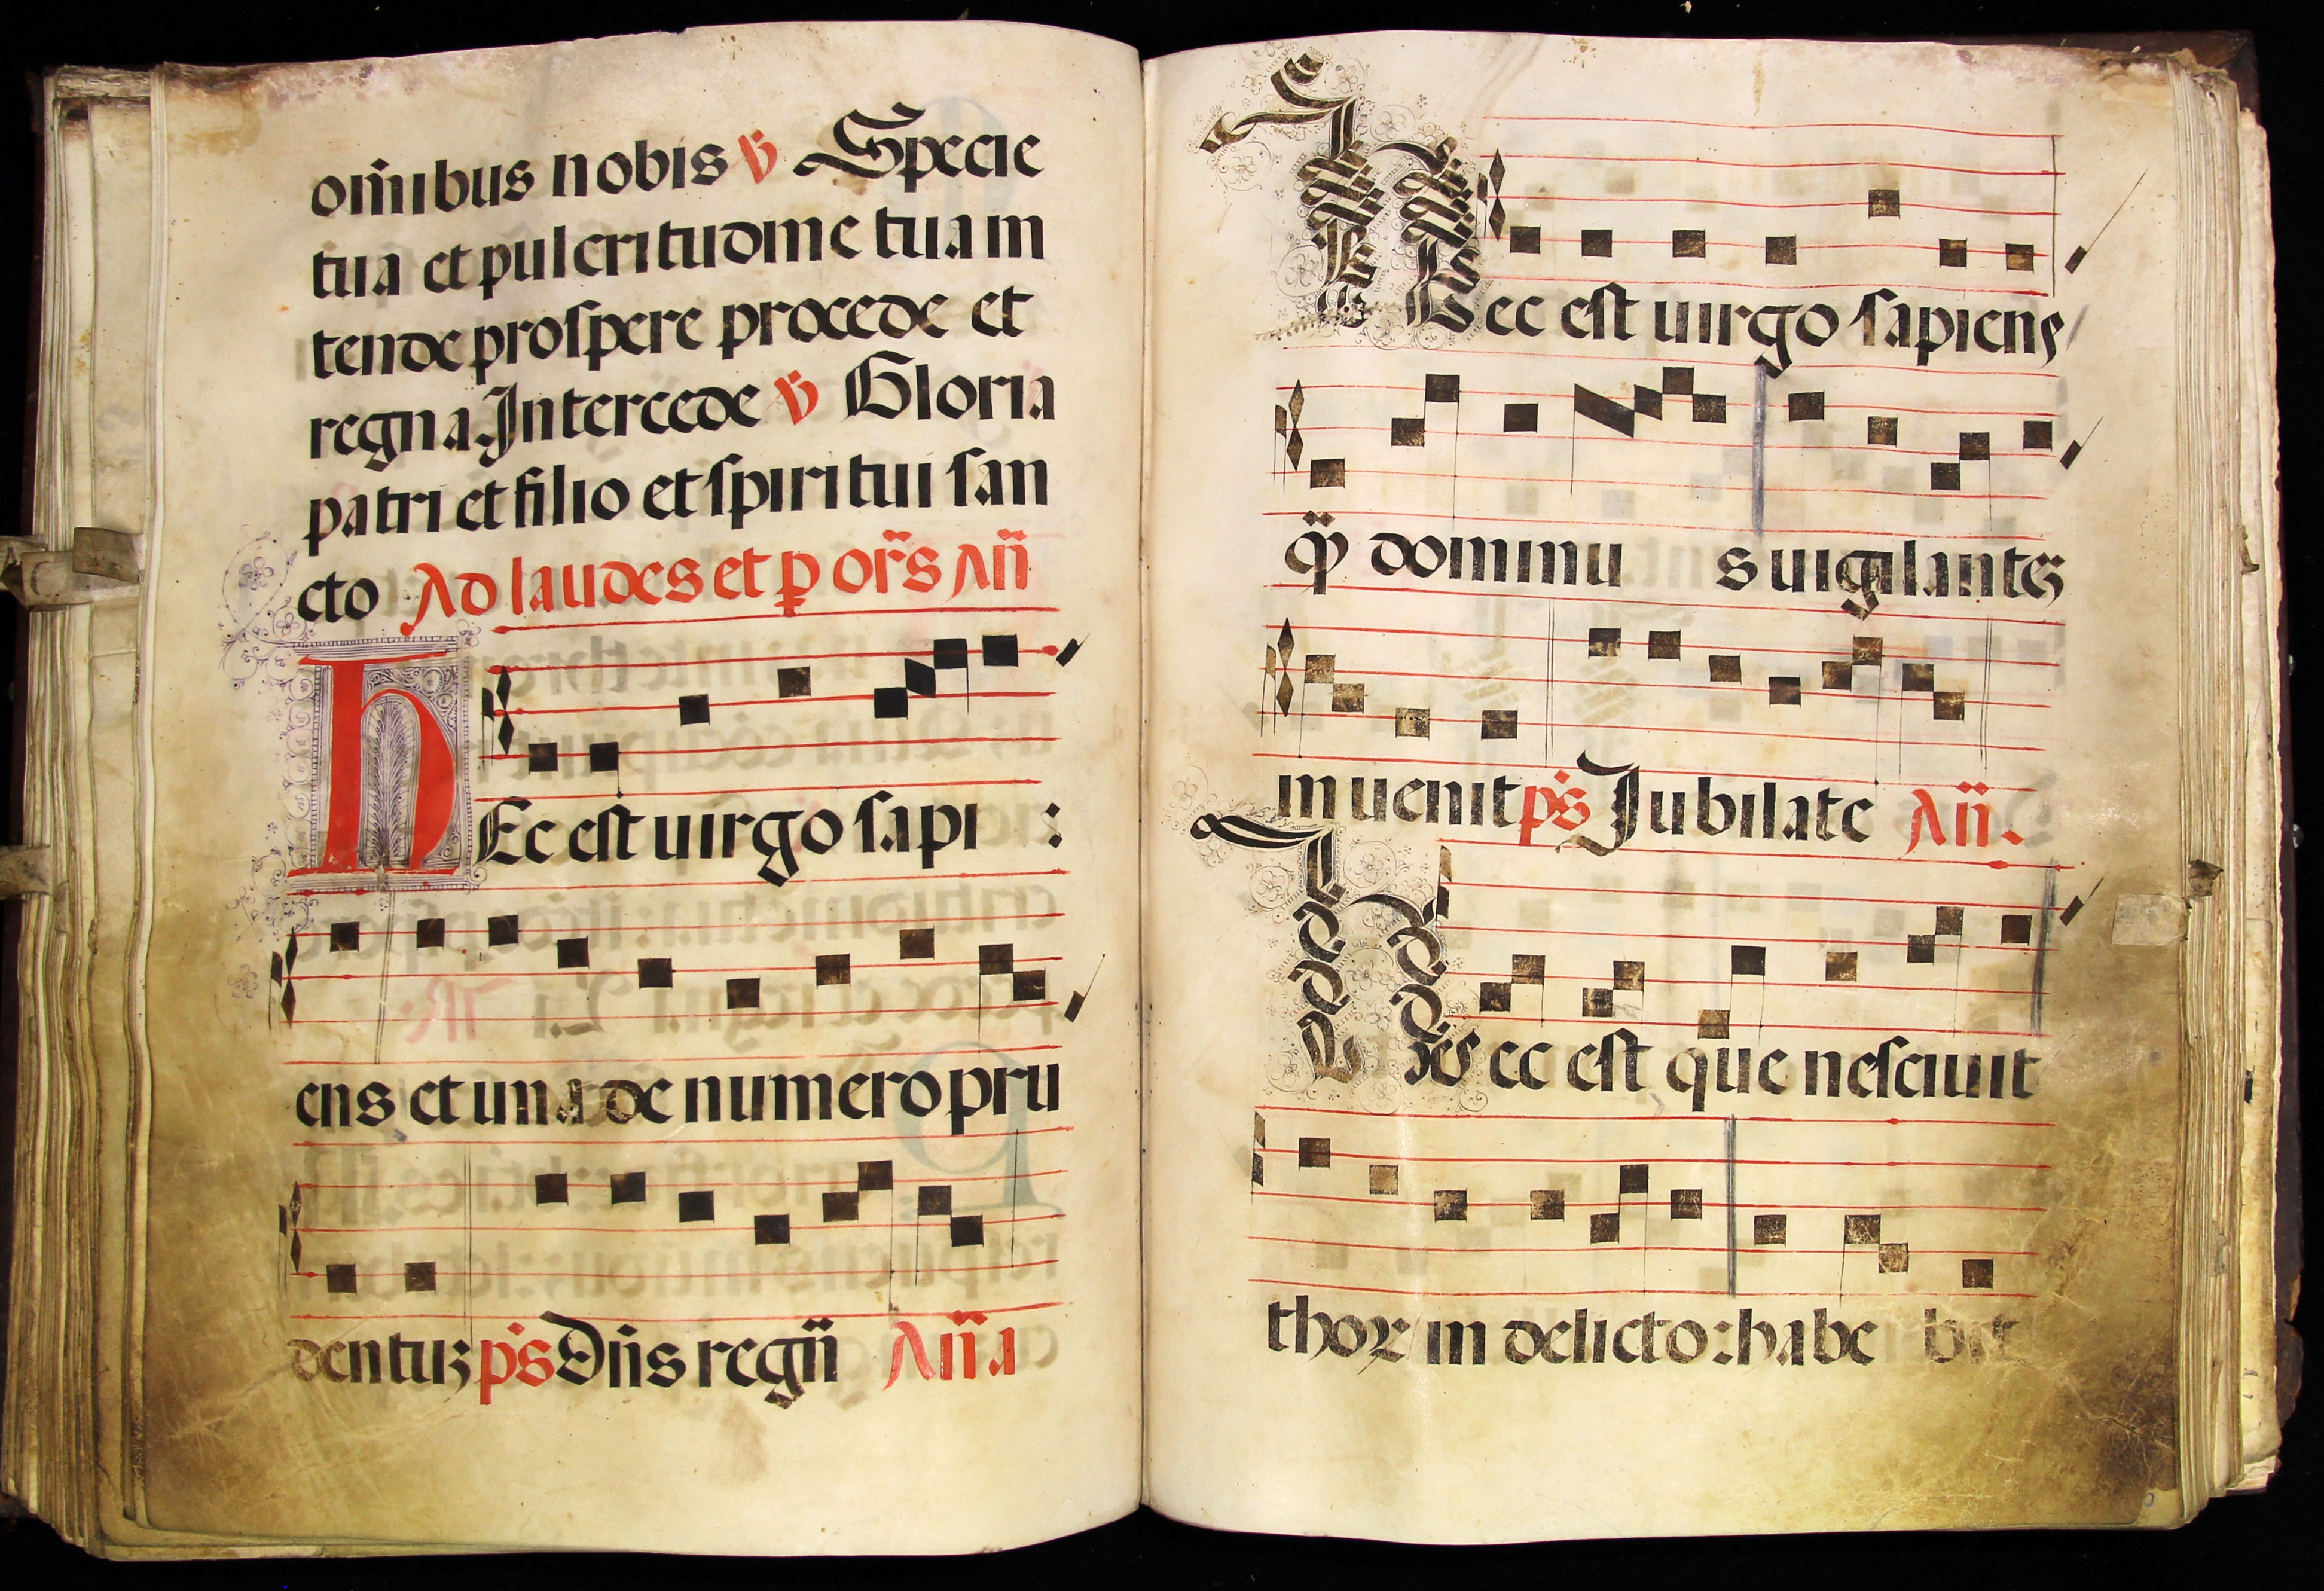 om̄ibus nobis ℣ Specie
tua et pulcritudine tua in
tende proſpere procede et
regna Intercede ℣ Gloria
patri et filio et ſpiritui ſan
cto Ad laudes et p̱ or̃s An̄
HEc eſt uirgo ſapi :
ens et una de numero pru
dentuꝫ p̄s Dn̄s regn̄ An̄a
Hec eſt uirgo ſapiens
q̄ȝ dominu s uigilanteꝫ
inuenit p̄s Jubilate An̄.
Hec eſt que neſciuit
thoꝛ in delicto: habe bit